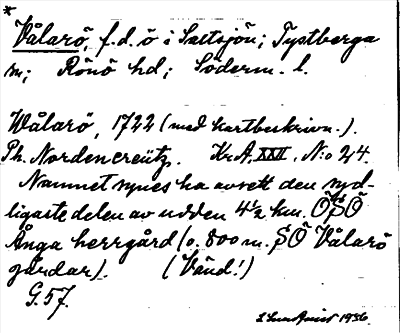 *
Vålarö, f.d. ö i Saltsjön; Tystberga
sn; Rönö hd; Söderm. l.
Wålarö, 1722 (med kartbeskrivn.).
Ph. Nordencreütz. Kr.A, XXII, N:o 24.
Namnet synes ha avsett den syd-
ligaste delen av udden 4½ km. ÖSÖ
Ånga herrgård (o. 800 m. SÖ Vålarö
gårdar). (Vänd!)
G. 57.
1936